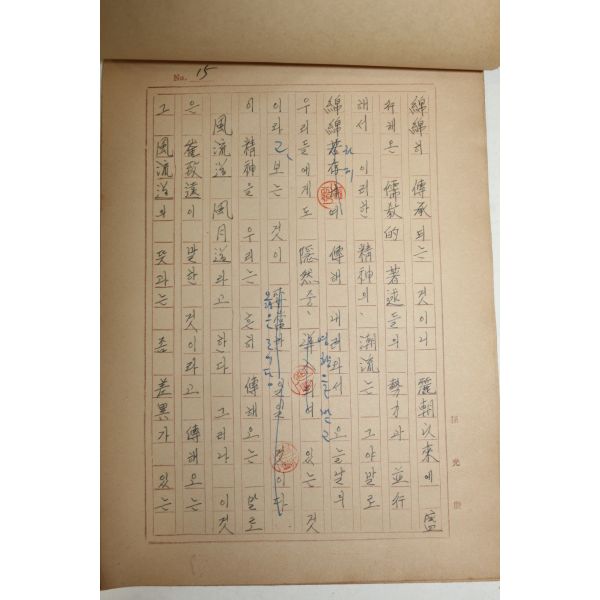 No. 15
綿綿히 傳承되는 것이니 麗朝以來에 盛
行해온 儒敎的 著述들의 勢力과 並行
해서 이러한 精神의 潮流는 그야말로
綿綿若存 傳해 내려와서 오늘날의
우리들에게도 隱然중 있는 것
이라고 보는 것이 옳을 것이다
이 精神을 우리는 흔히 傳해오는 말로
風流道 風月道라고 한다 그러나 이것
은 崔致遠이 말한 것이라고 傳해오는
그 風流道의 뜻과는 좀 差異가 있는